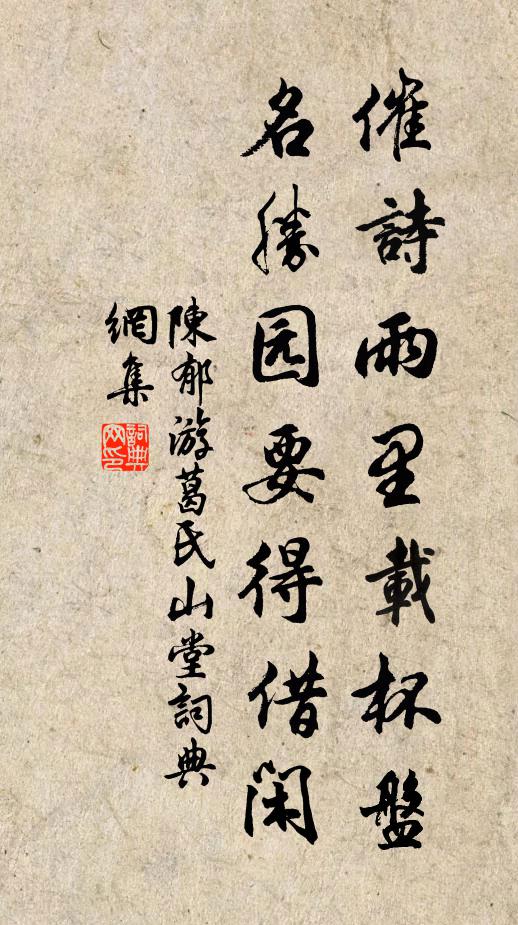 催詩雨里載杯盤
名勝园要得借閑
陳郁游葛氏山堂詞典
網集
詞典网印